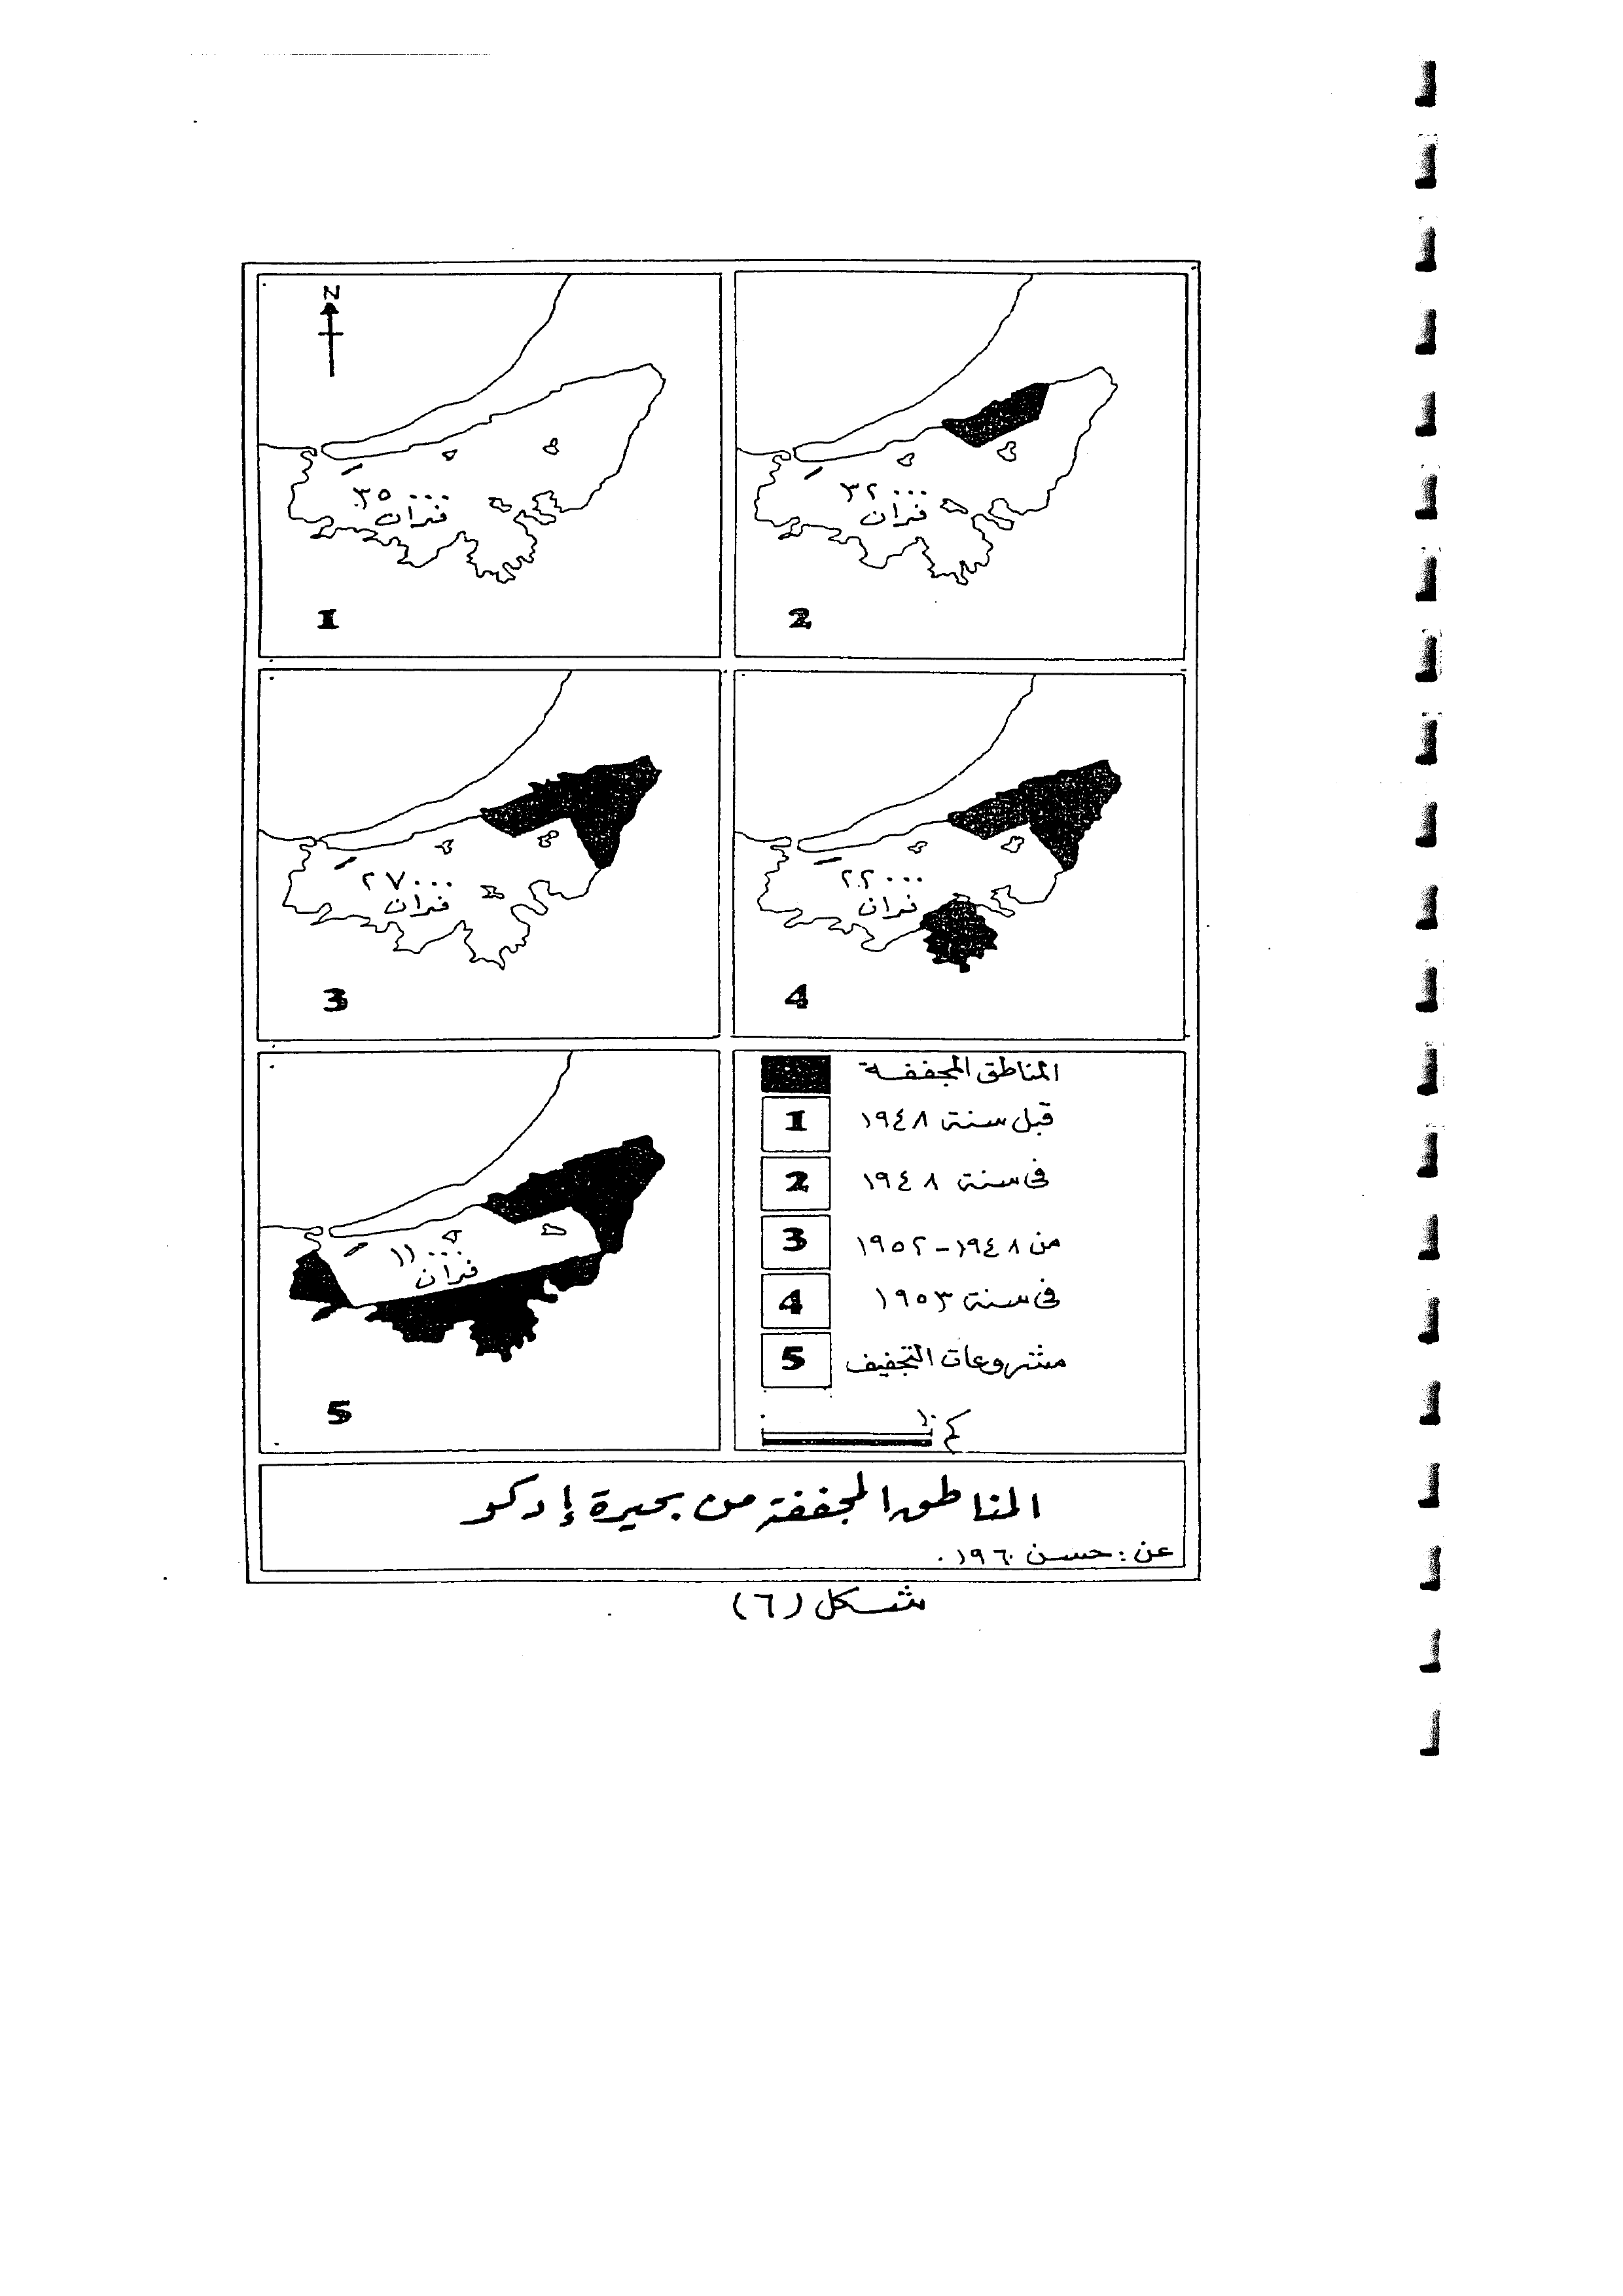 N
٣٥٠٠٠
فدان
1
٣٢٠٠٠
فدان
2
٢٧٠٠٠
فدان
3
٢٢٠٠٠
فدان
4
١١٠٠٠
فدان
5
المناطق المجففة
1 قبل سنة ١٩٤٨
2 فى سنة ١٩٤٨
3 من ١٩٤٨-١٩٥٢
4 فى سنة ١٩٥٣
5 مشروعات التجفيف
١٠ كم
المناطق المجففة من بحيرة إدكو
عن : حسن ١٩٦٠.
شكل (٦)